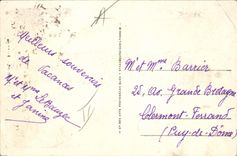 Meilleurs souvenirs
de Vacances
Mr et Mme
et Janine
Mr et Mme Barrier
28, av. Grande Bretagne
Clermont-Ferrand
(Puy-de-Dôme)